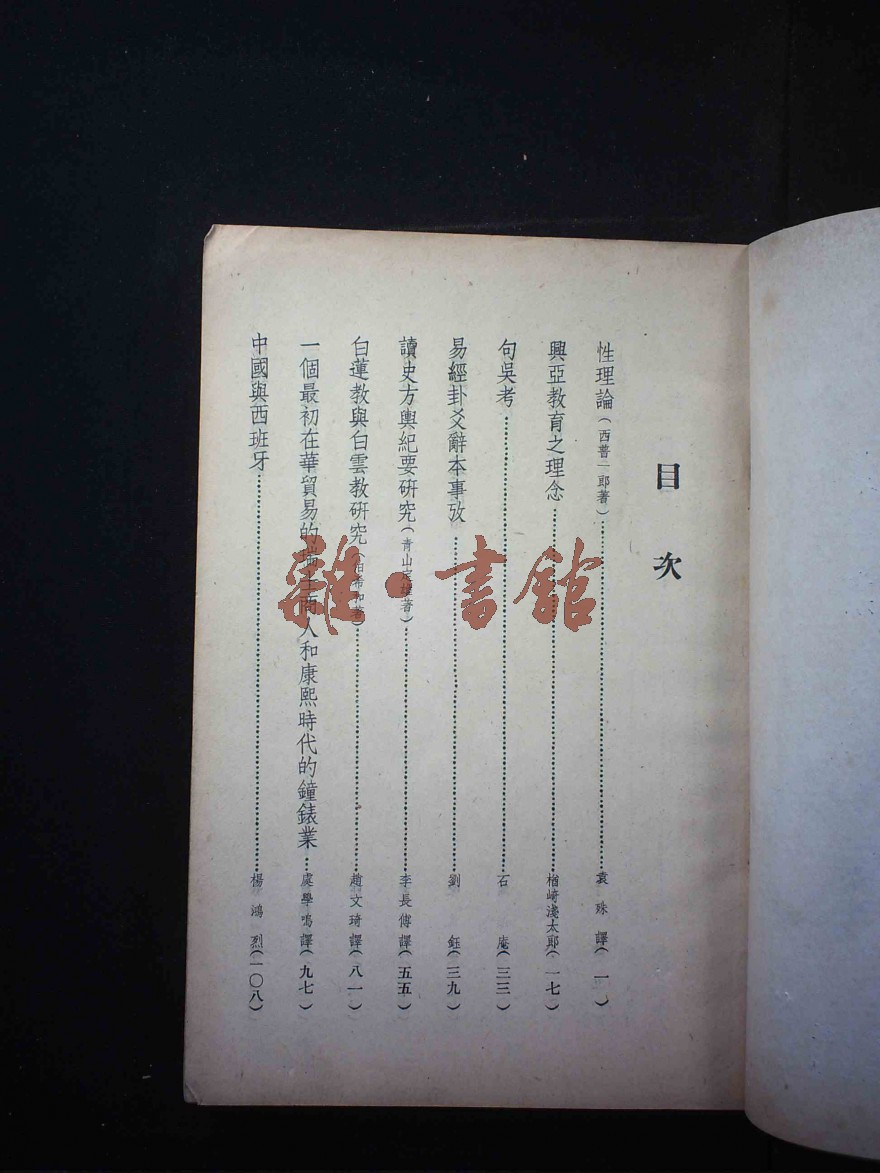 目次
性理論(西晉一郎著)……袁殊譯(一)
興亞教育之理念……楢崎淺太郎(一七)
句吳考……石庵(三三)
易經卦爻辭本事攷……劉鈺(三九)
讀史方輿紀要研究(青山定雄著)……李長傅譯(五五)
白蓮教與白雲教研究(伯希和著)……趙文琦譯(八一)
一個最初在華貿易的瑞士商人和康熙時代的鐘錶業……虞學鳴譯(九七)
中國與西班牙……楊鴻烈(一〇八)
雜·書館